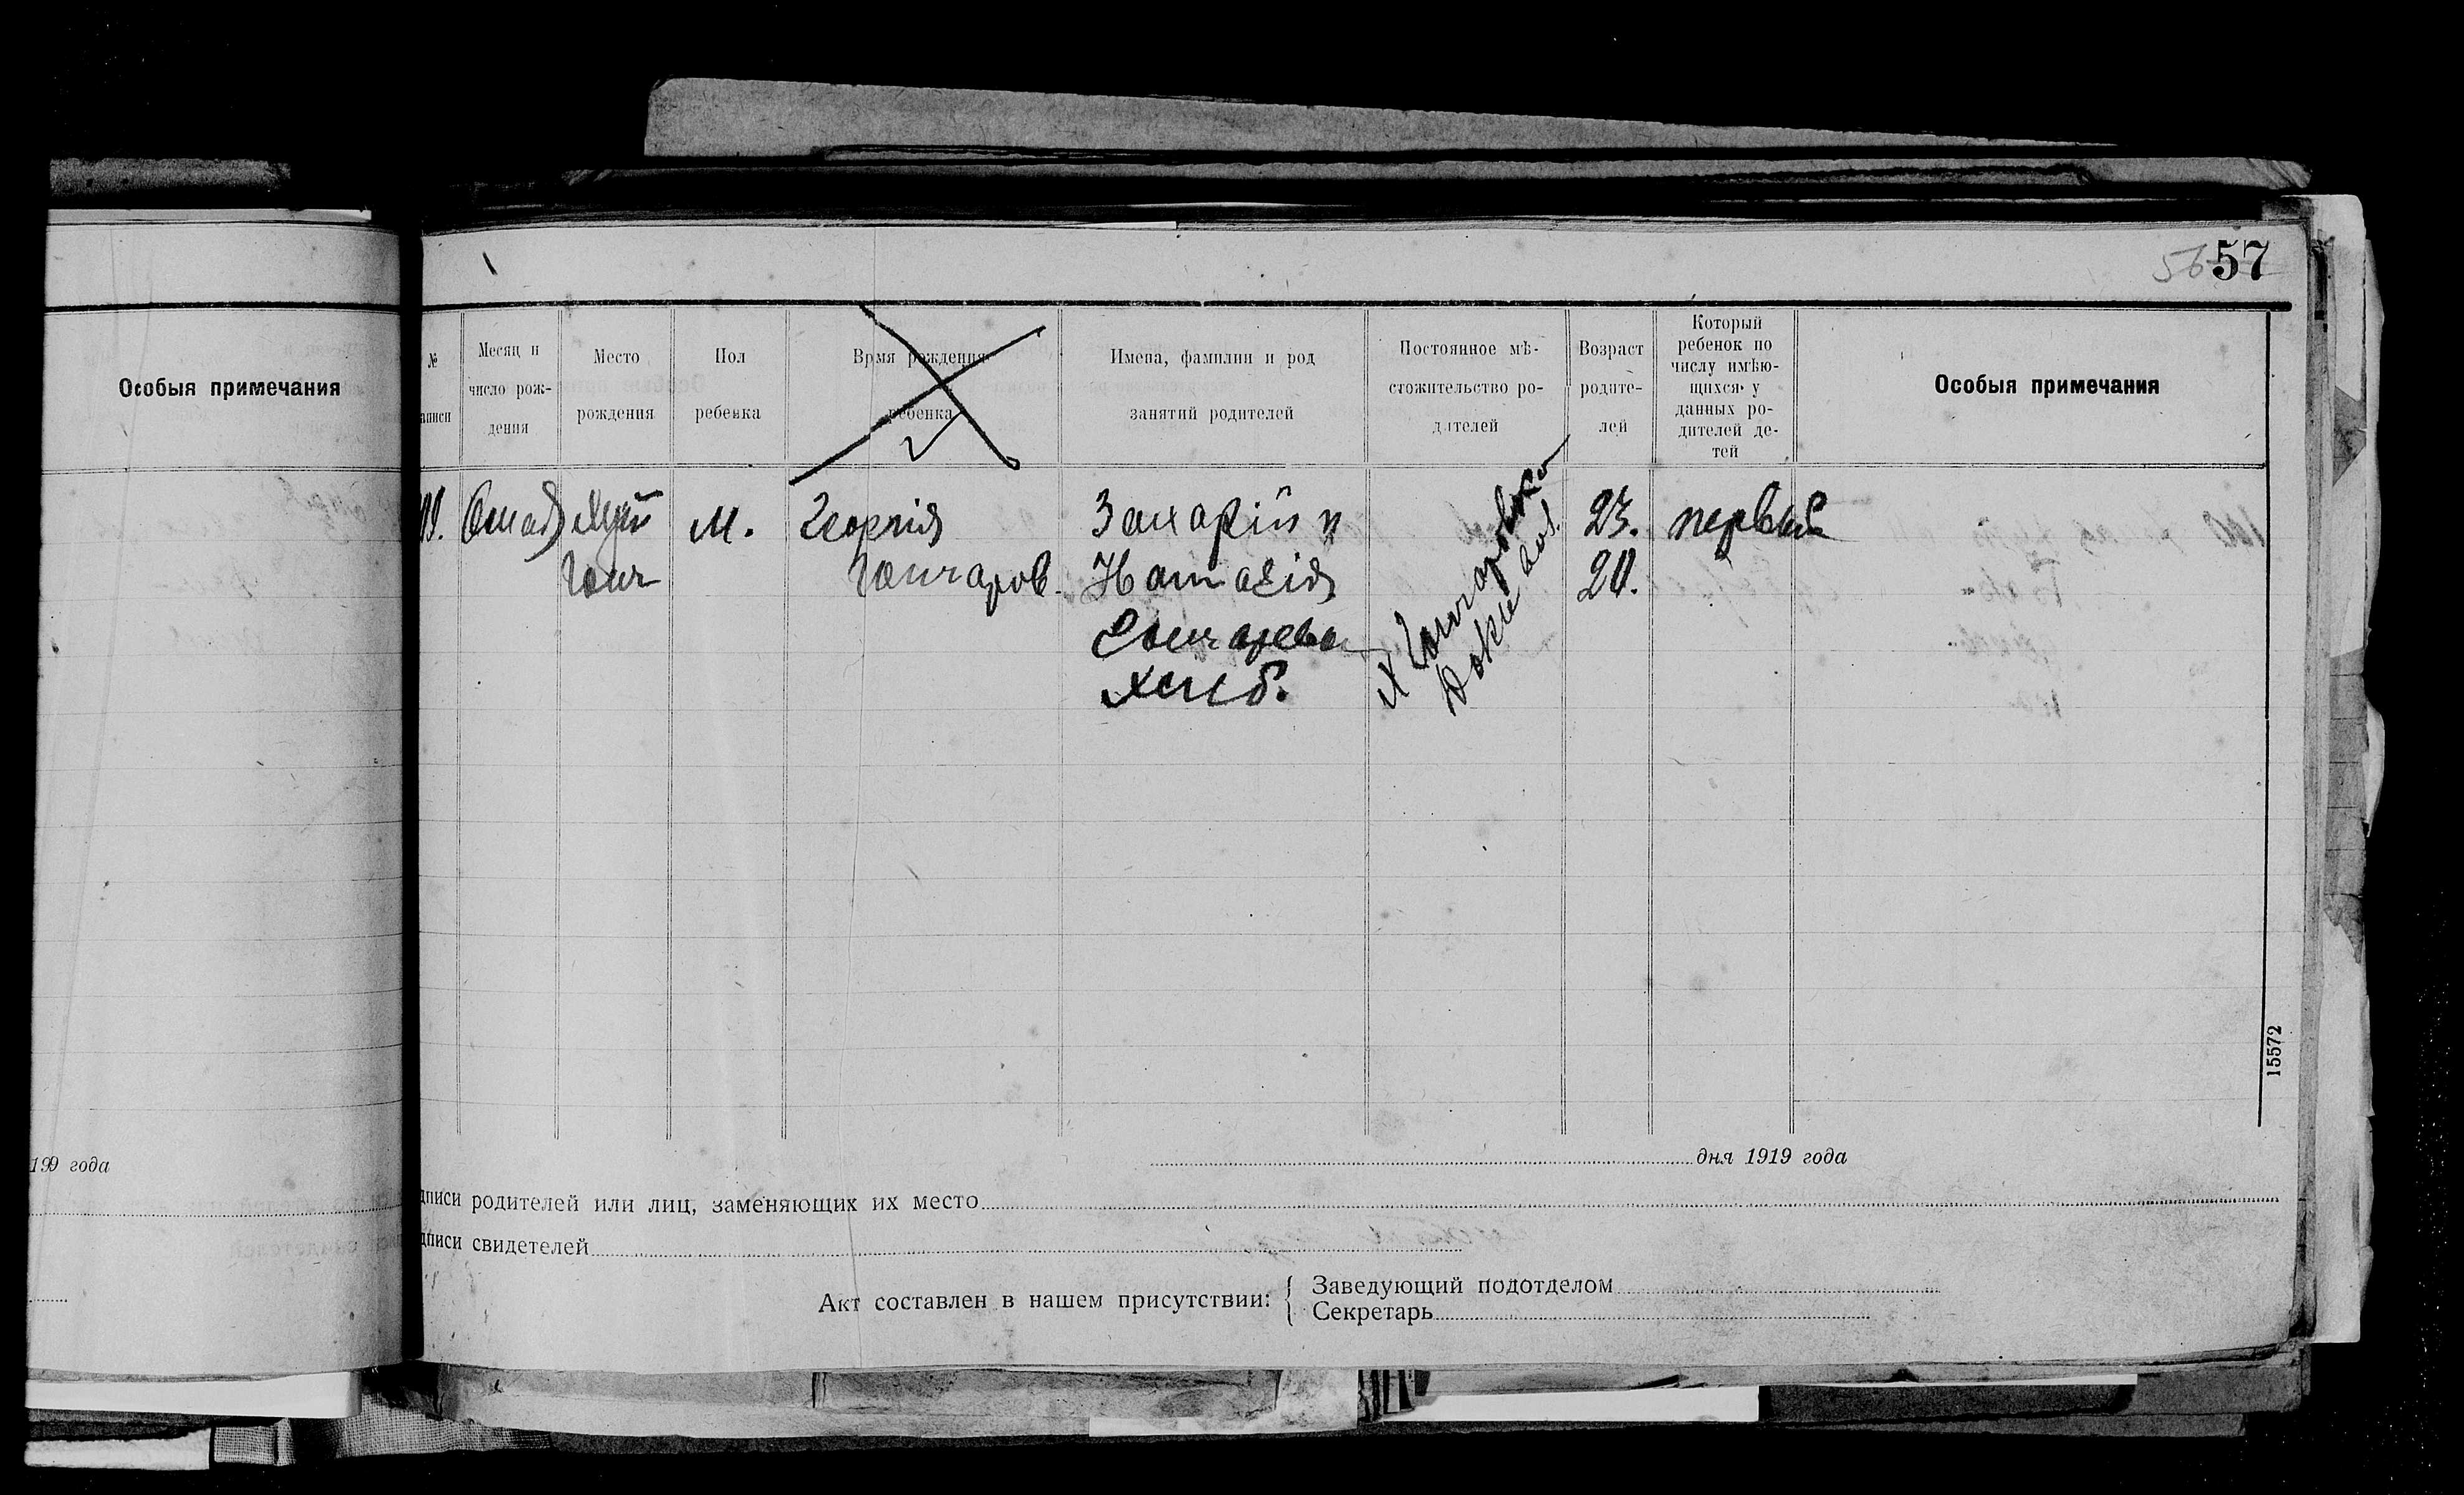 56 57
Особыя примечания
№
аписи
Месяц и
число рож-
дения
Место
рождения
Пол
ребенка
Время рождения
ребенка
Имена, фамилии и род
занятий родителей
Постоянное мѣ-
стожительство ро-
дителей
Возраст
родите-
лей
Который
ребенок по
числу имѣю-
щихся у
данных ро-
дителей де-
тей
Особыя примечания
М.
Георгій
Гончаров
Захарій и
Наталія
Гончарова
хлѣб.
Х Гончаровка
23.
20.
первый
15572
199 года
дня 1919 года
дписи родителей или лиц, заменяющих их место
дписи свидетелей
Акт составлен в нашем присутствии:
Заведующий подотделом
Секретарь